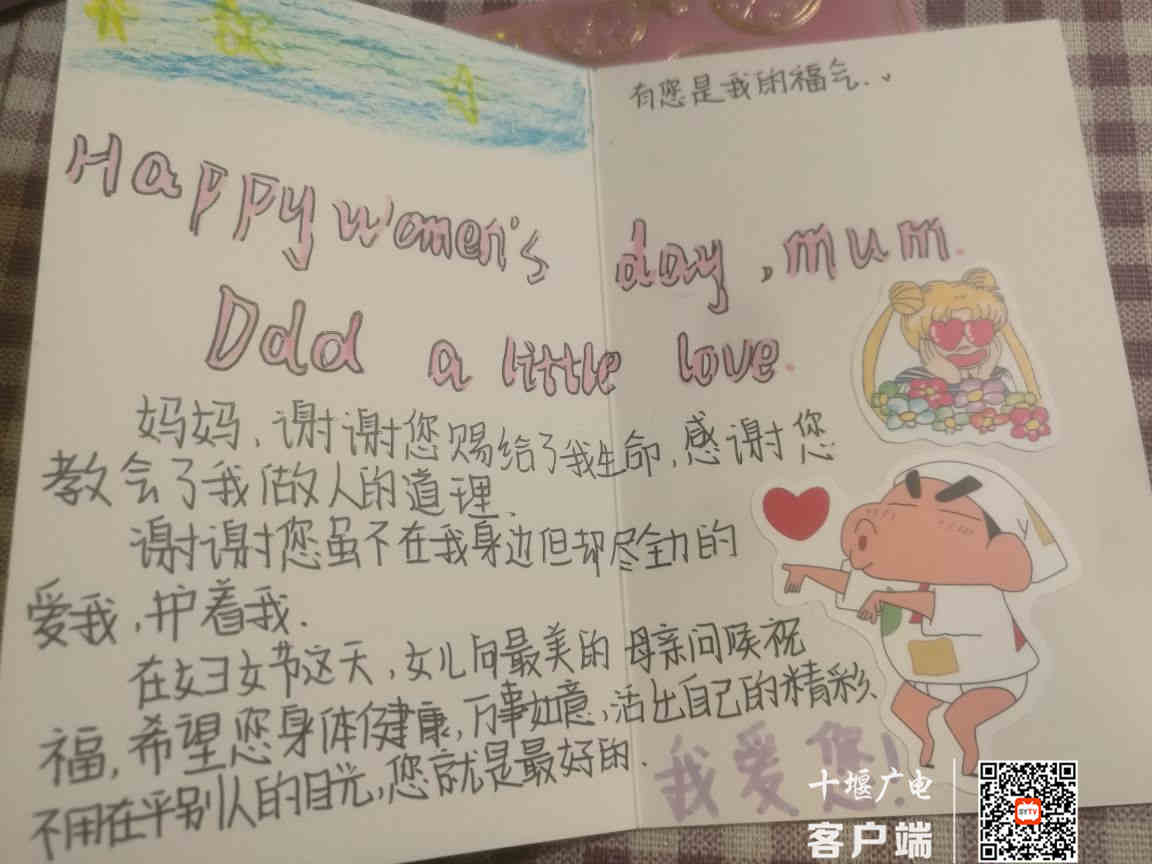 有您是我的福气.
Happy women's day, mum.
Ddd a little love.
妈妈、谢谢您赐给了我生命,感谢您
教会了我做人的道理.
谢谢您虽不在我身边但却尽全力的
爱我,护着我.
在妇女节这天,女儿向最美的母亲问候祝
福,希望您身体健康,万事如意,活出自己的精彩、
不用在乎别人的目光,您就是最好的.
我爱您!
十堰广电
客户端
SYTV